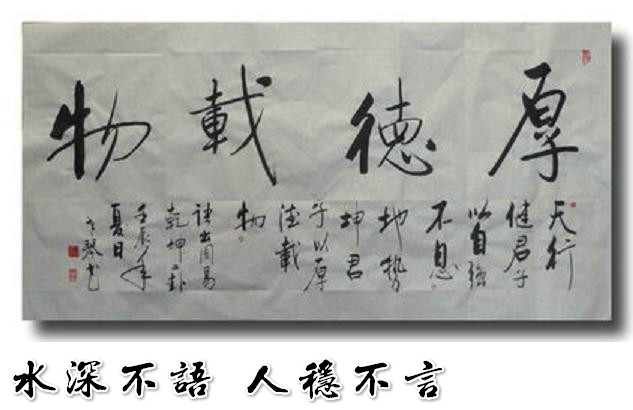 厚德載物
天行
健君子
以自強
不息
地勢
坤君
子以厚
德載
物
語出周易
乾坤二卦
壬辰年
夏日
水深不語 人穩不言